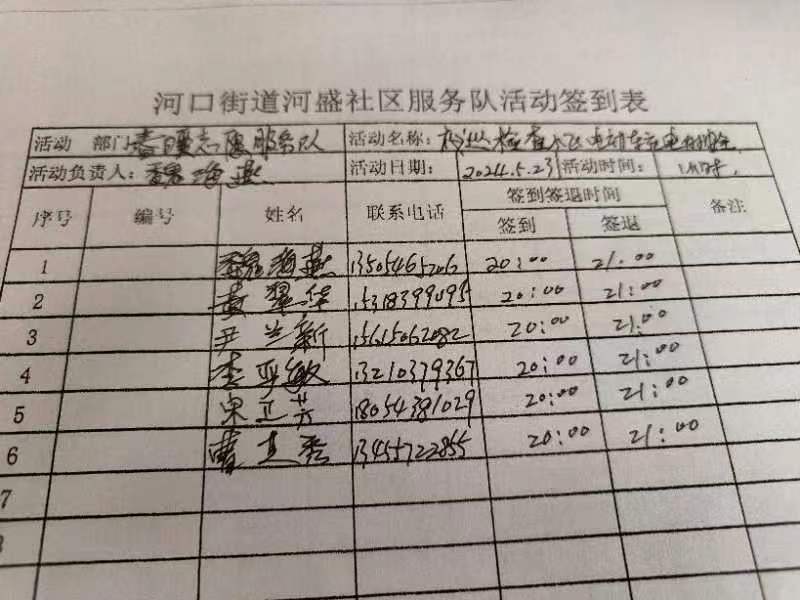 河口街道河盛社区服务队活动签到表
活动 部门: 春暖志愿服务队 活动名称: 检查 电动车充电
活动负责人: 魏海燕 活动日期: 2024.5.23 活动时间: 1小时.
序号 编号 姓名 联系电话 签到签退时间 备注
签到 签退
1 魏海燕 13505465206 20:00 21:00
2 黄翠华 15318399095 20:00 21:00
3 尹兰新 15615062082 20:00 21:00
4 李亚敏 13210379367 20:00 21:00
5 宋卫芳 18054381029 20:00 21:00
6 曹 秀 13455722855 20:00 21:00
7